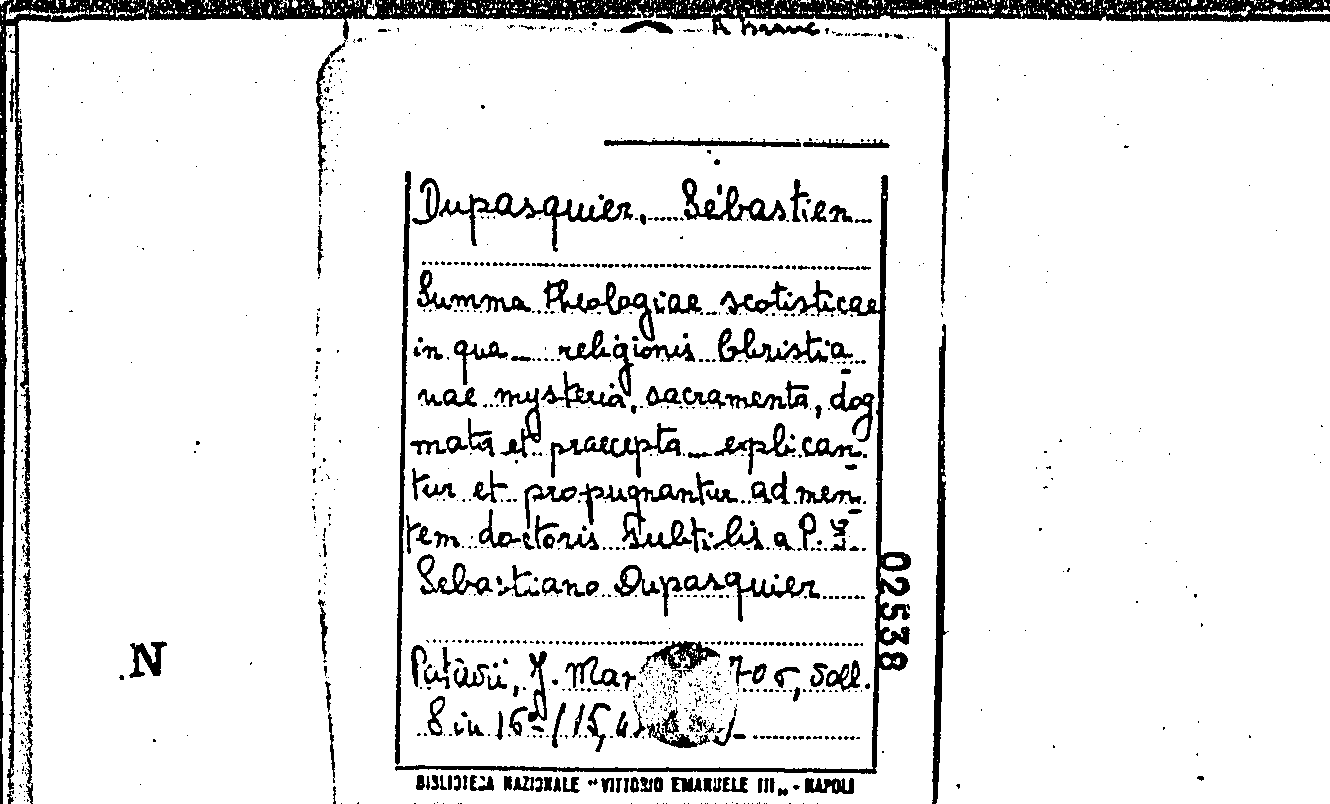 Dupasquier, Sébastien
Summa theologiae scotisticae
in qua religionis Christia
nae mysteria, sacramenta, dog
mata et praecepta explican
tur et propugnantur ad men
tem doctoris Subtilis a P.
Sebastiano Dupasquier
Patavii, J. Mar
8 in 16°
02538
N
BIBLIOTECA NAZIONALE "VITTORIO EMANUELE III„ - NAPOLI